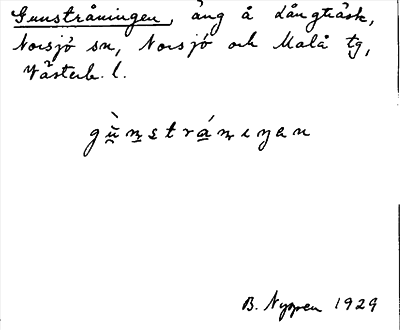 Gunstråningen, äng å Långträsk,
Norsjö sn, Norsjö och Malå tg,
Västerb. l.
gu̖̇nstránıŋen
B. Nyman 1929